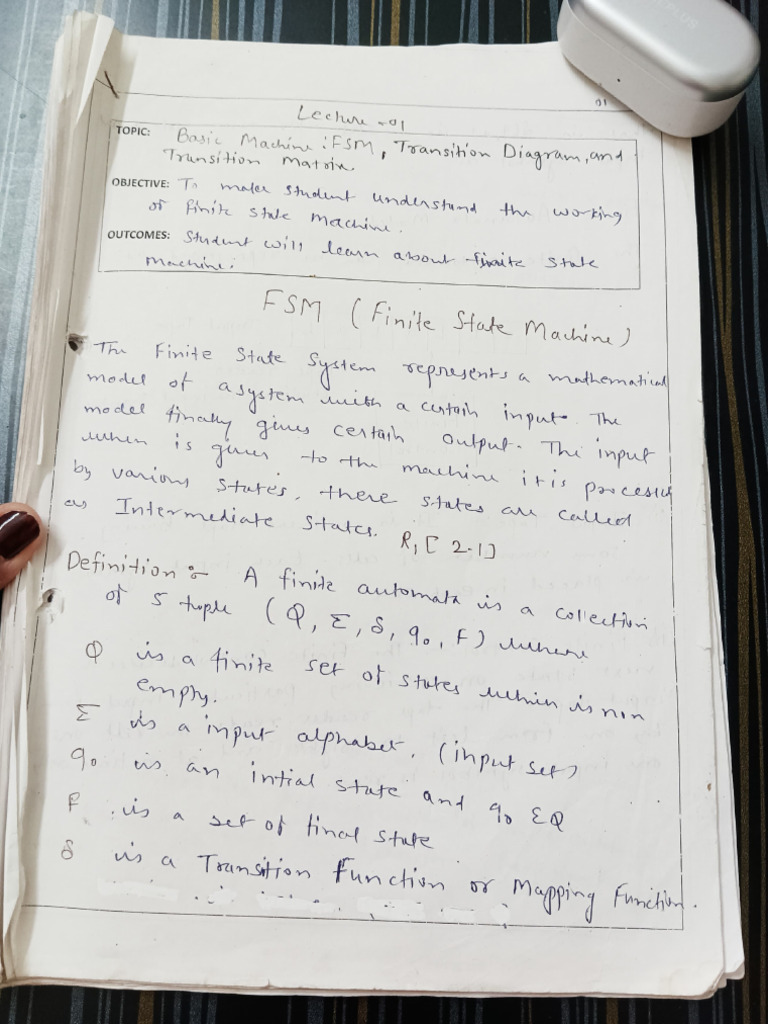 01
Lecture -01
TOPIC: Basic Machine: FSM, Transition Diagram, and
Transition Matrix.
OBJECTIVE: To make student understand the working
of finite state machine.
OUTCOMES: Student will learn about finite state
machine.
FSM (Finite State Machine)
The Finite State System represents a mathematical
model of a system with a certain input. The
model finally gives certain output. The input
when is given to the machine it is processed
by various states, these states are called
as Intermediate states. R1 [ 2.1]
Definition :- A finite automata is a collection
of 5 tuple (Q, Σ, δ, q0, F) where
Q is a finite set of states which is non
empty.
Σ is a input alphabet, (input set)
q0 is an intial state and q0 ΣQ
F is a set of final state
δ is a Transition Function or Mapping Function.